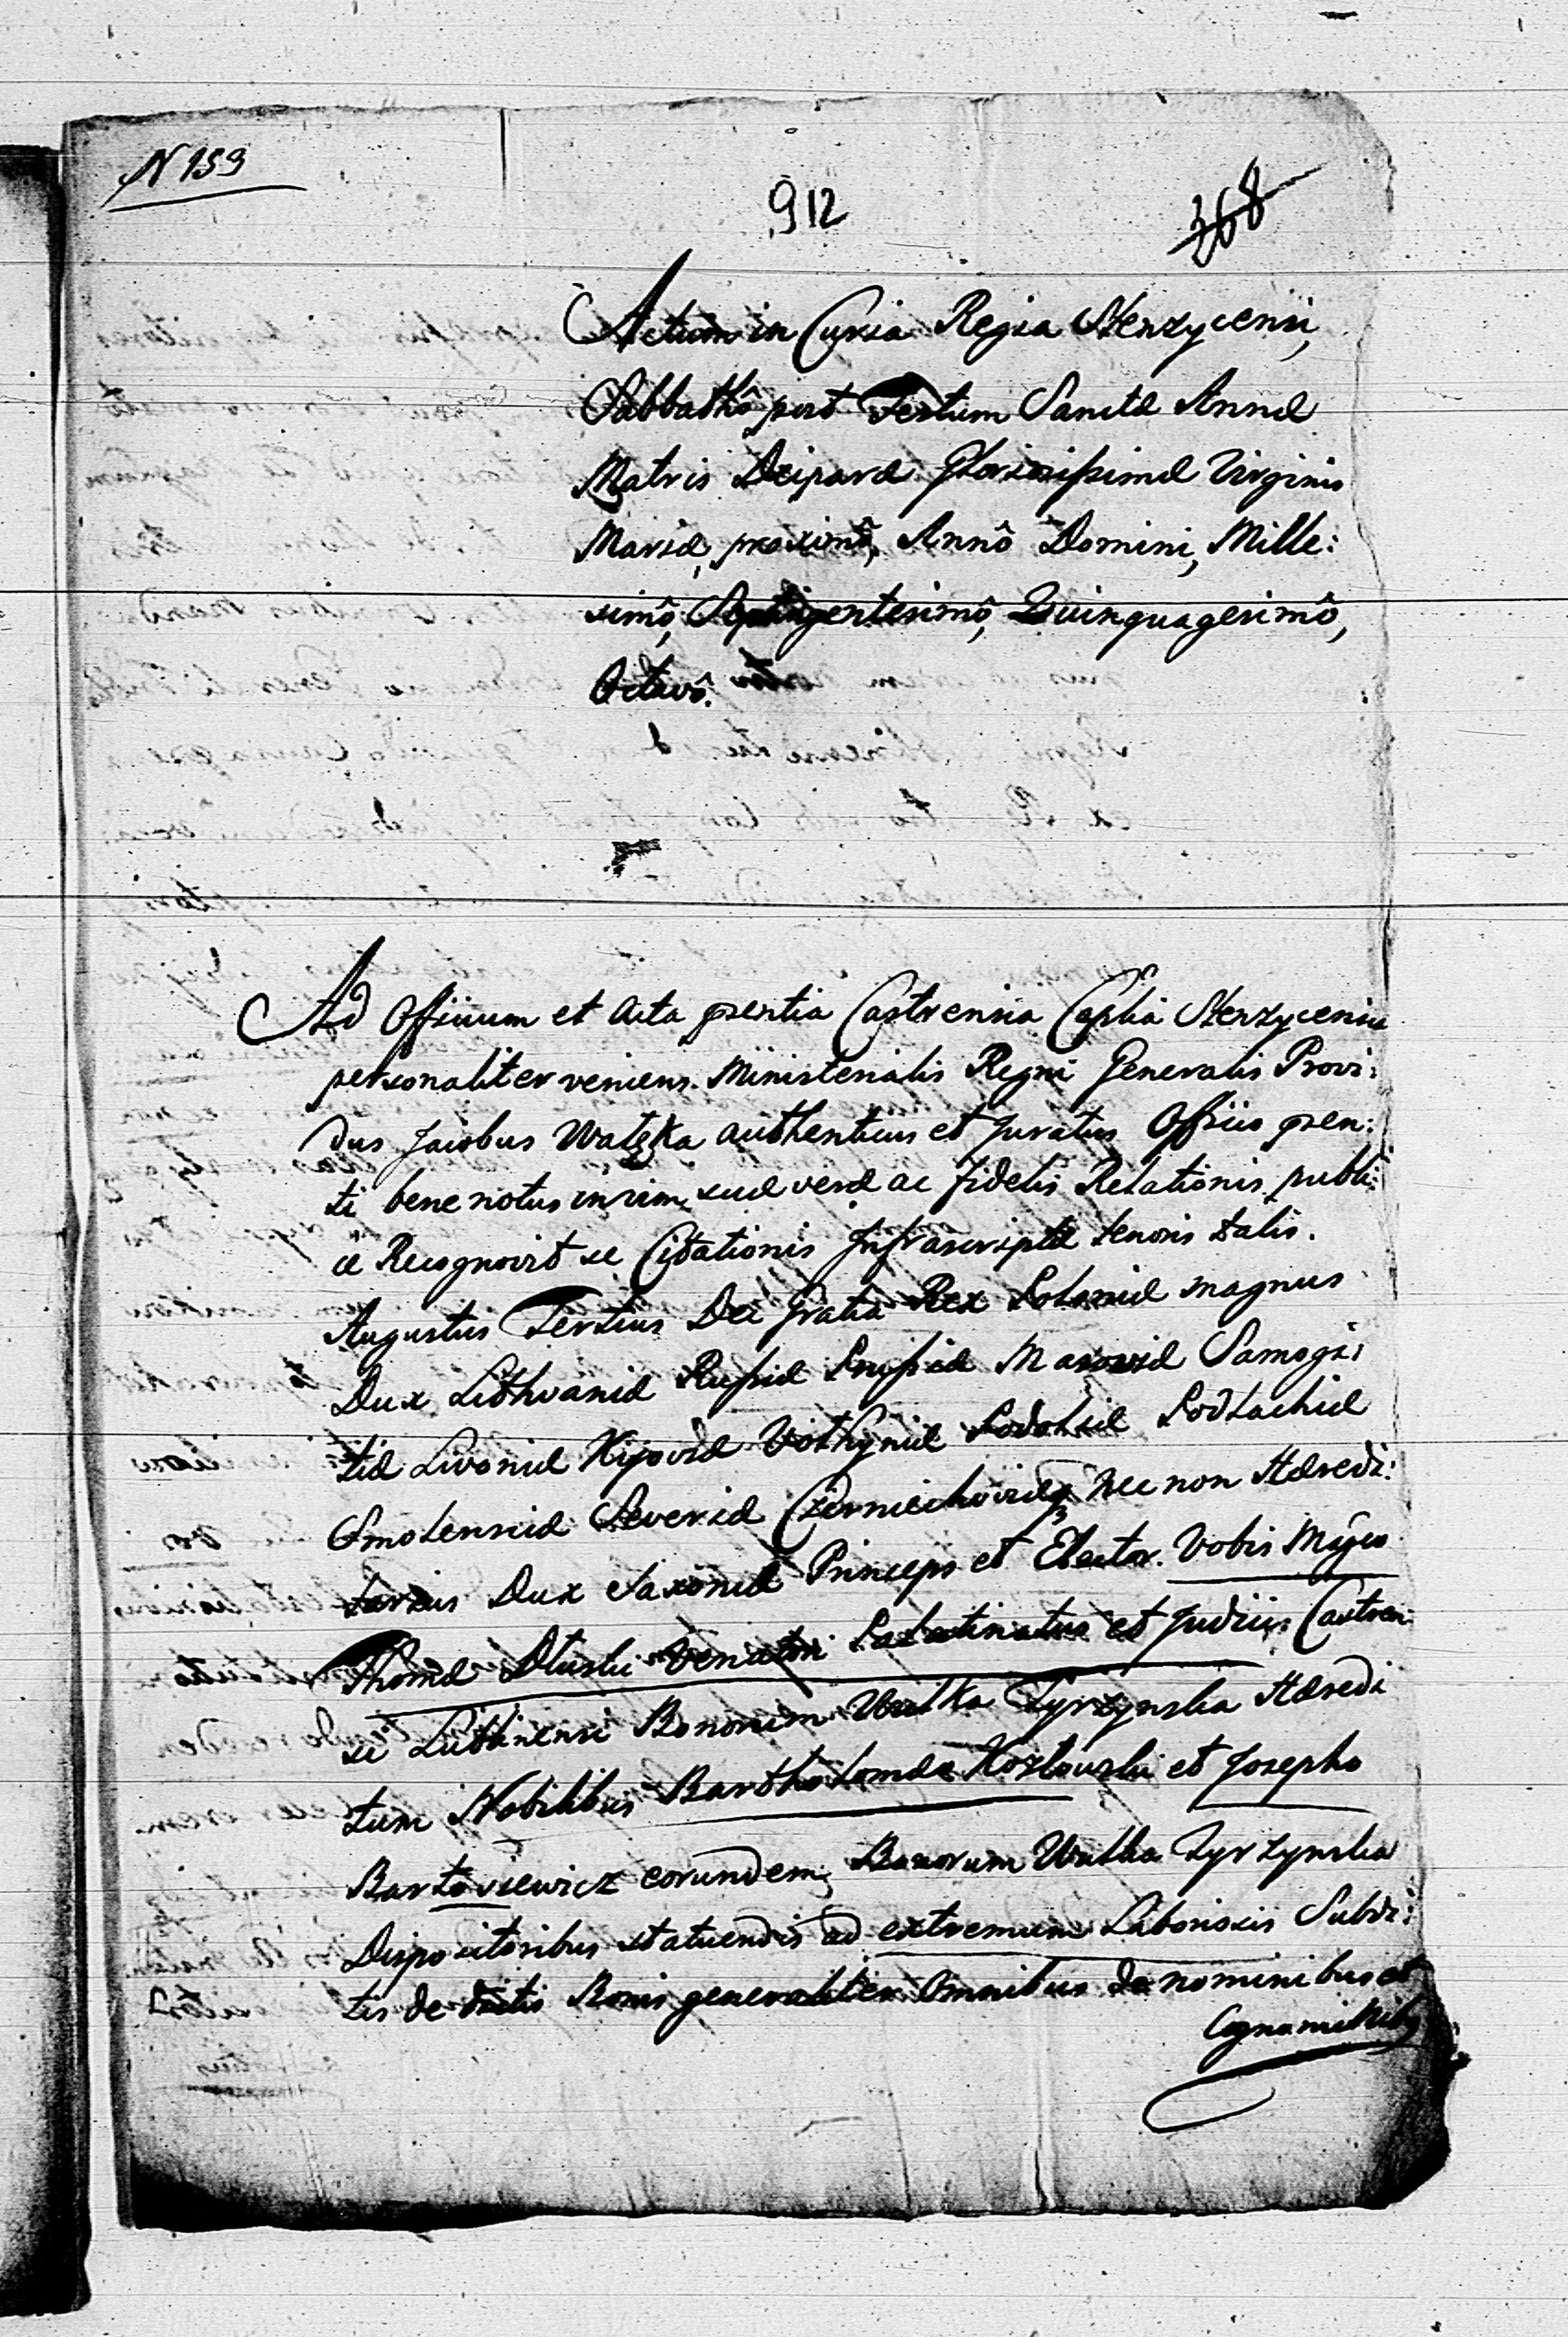 N 159
912
368
Actum in Curia Regia Stenzycensi,
Sabbathô post Festum Sanctæ Annæ
Matris Deiparæ Gloriosissimæ Virginis
Mariæ, proximô, Annô Domini, Mille:
simô, Septingentesimô, Quinquagesimô,
Octavô.
Ad Officium et Acta pñentia Castrensia Caplia Stenzycensia
personaliter veniens. Ministerialis Regni Generalis Provi:
dus Jacobus Watzka authenticus et Juratus Officio pñen:
ti bene notus in vim suæ veræ ac fidelis Relationis publi:
ce Recognovit se Citationis Infrascriptæ tenoris talis.
Augustus Tertius Dei Gratia Rex Poloniæ magnus
Dux Lithvaniæ Russiæ Prussiæ Masoviæ Samogi:
tiæ Livoniæ Kijoviæ Volhyniæ Podoliæ Podlachiæ
Smolensciæ Severiæ Czerniechoviæq nec non Hæredi:
tarius Dux Saxoniæ Princeps et Elector. Vobis Mgco
Thomæ Dłuski Venatori Palatinatus et Judici Castren:
si Lublinensi Bonorum Wulka Tyrzynska Hæredi
tum Nobilibus Bartholomæo Kozłowski et Josepho
Bartosiewicz eorundem Bonorum Wulka Tyrzynska
Dispositoribus statuendis ad extremum Laboriosis Subdi:
tis de dictis Bonis generaliter Omnibus de nominibus et
Cognominibq